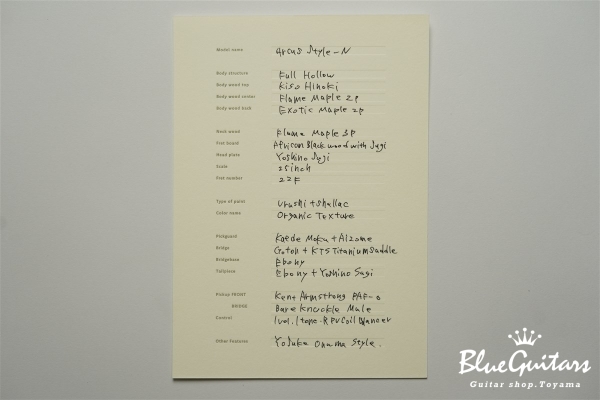 Model name arcus Style-N
Body structure Full Hollow
Body wood top Kiso Hinoki
Body wood center Flame Maple 2P
Body wood back Exotic Maple 2P
Neck wood Flame Maple 3P
Fret board African Blackwood with Sugi
Head plate Yoshino Sugi
Scale 25inch
Fret number 22F
Type of paint Urushi + Shellac
Color name Organic Texture
Pickguard Kaede Moku + Aizome
Bridge Gotoh + KTS Titanium Saddle
Bridgebase Ebony
Tailpiece Ebony + Yoshino Sugi
Pickup FRONT Kent Armstrong PAF-0
BRIDGE Bare Knuckle Mule
Control 1vol. 1tone.
Other Features Style.
BlueGuitars
Guitar shop.Toyama